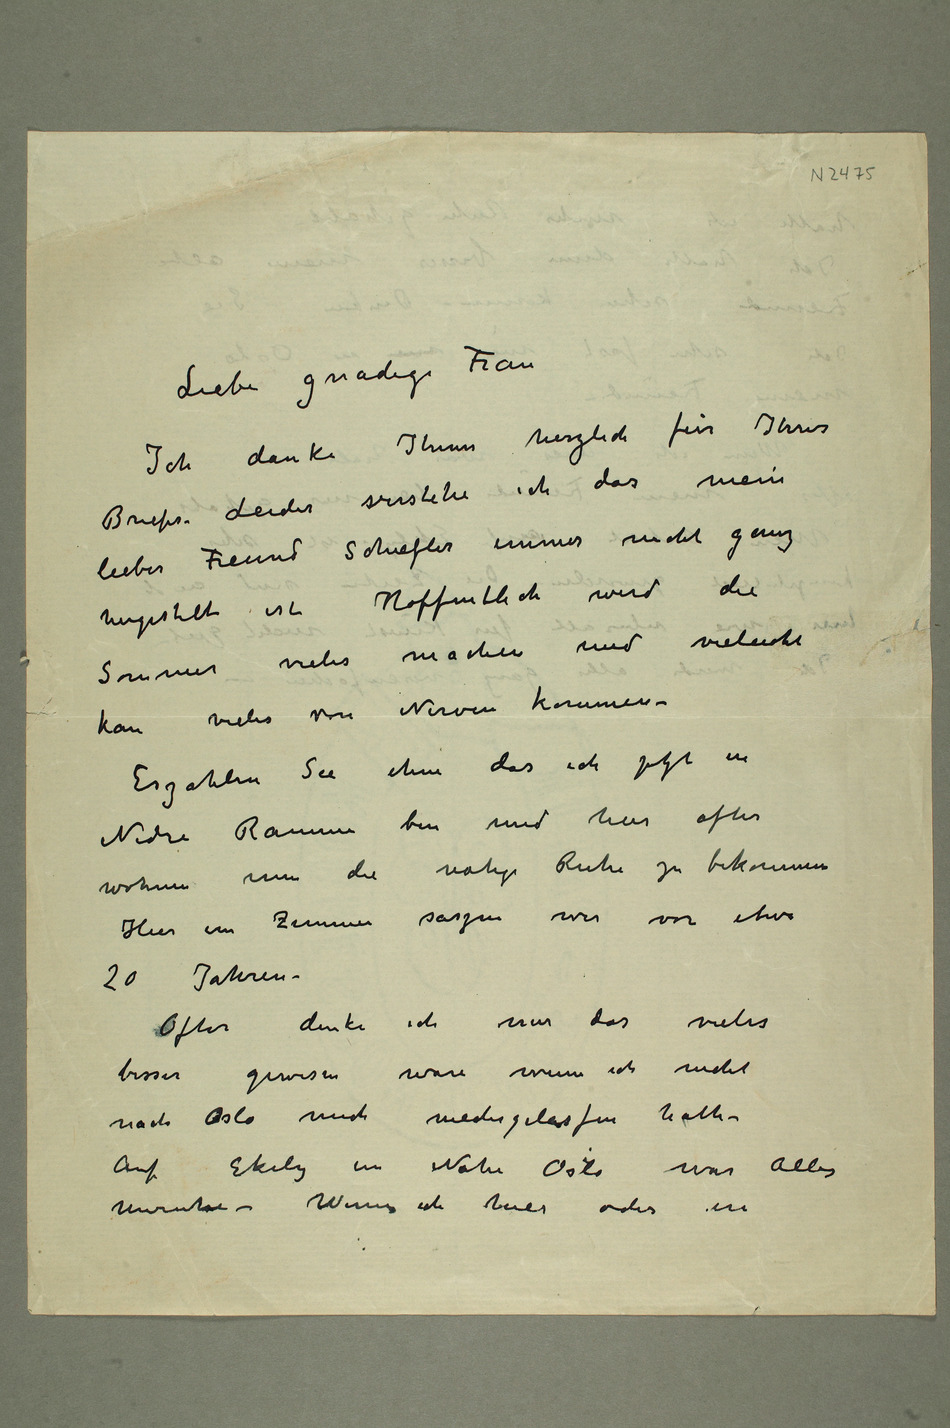 N 2475
Liebe gnädige Frau
Ich danke Ihnen herzlich für Ihres
Briefes. Leider verstehe ich das mein
lieber Freund Schiefler immer nicht ganz
hergestellt ist Hoffentlich wird die
Sommer vieles machen und vieleicht
kan vieles von Nerven kommen –
Erzahlen Sie ihm das ich jetzt in
Nedre Ramme bin und hier ofter
wohne um die notige Ruhe zu bekommen
Hier im Zimmer saszen wir vor etwa
20 Jahren –
Ofter denke ich mir das vieles
besser gewesen ware wenn ich nicht
nach Oslo mich niedergelassen hatte –
Auf Ekely in Nahe Oslo war Alles
Unruhe – Wenn ich hier oder in